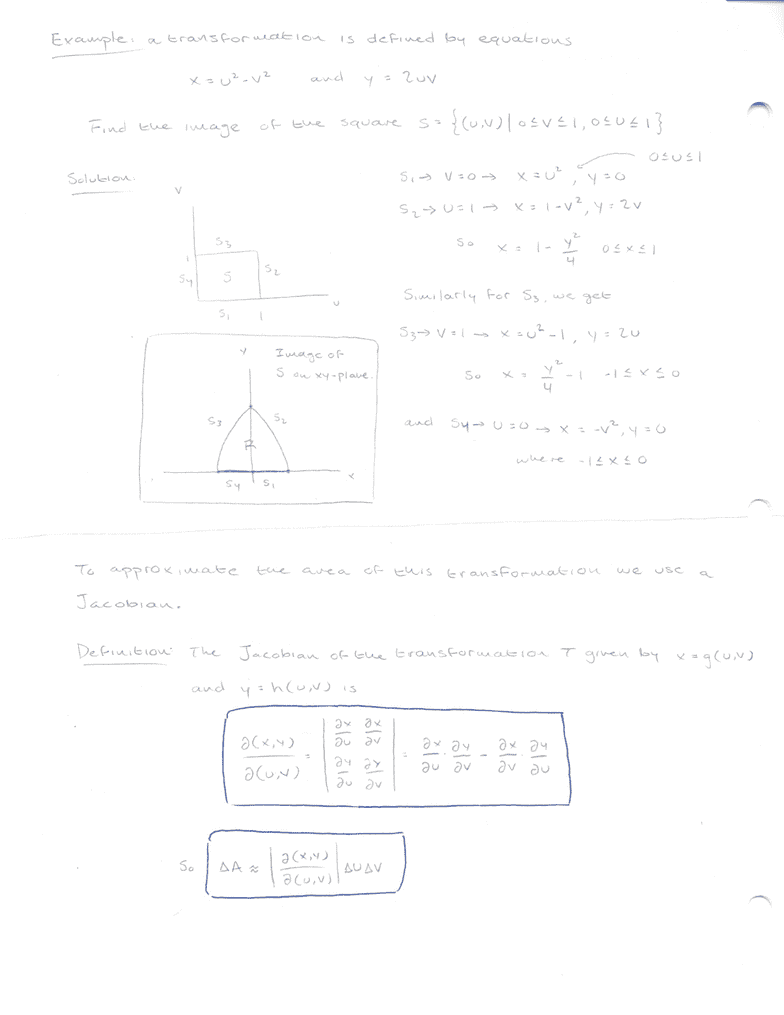 Example: a transformation is defined by equations
x = u² - v² and y = 2uv
Find the image of the square S = {(u,v) | 0 ≤ v ≤ 1, 0 ≤ u ≤ 1}
Solution:
0 ≤ u ≤ 1
S₁ → v = 0 → x = u², y = 0
S₂ → u = 1 → x = 1 - v², y = 2v
So x = 1 - y²/4 0 ≤ x ≤ 1
Similarly for S₃, we get
S₃ → v = 1 → x = u² - 1, y = 2u
So x = y²/4 - 1 -1 ≤ x ≤ 0
and S₄ → u = 0 → x = -v², y = 0
where -1 ≤ x ≤ 0
v
S₃
1
S₄ S S₂
u
S₁ 1
y Image of
S on xy-plane.
S₃ S₂
R
x
S₄ S₁
To approximate the area of this transformation we use a
Jacobian.
Definition: The Jacobian of the transformation T given by x = g(u,v)
and y = h(u,v) is
∂(x,y)/∂(u,v) = | ∂x/∂u ∂x/∂v ; ∂y/∂u ∂y/∂v | = ∂x/∂u · ∂y/∂v - ∂x/∂v · ∂y/∂u
So ΔA ≈ | ∂(x,y)/∂(u,v) | Δu Δv